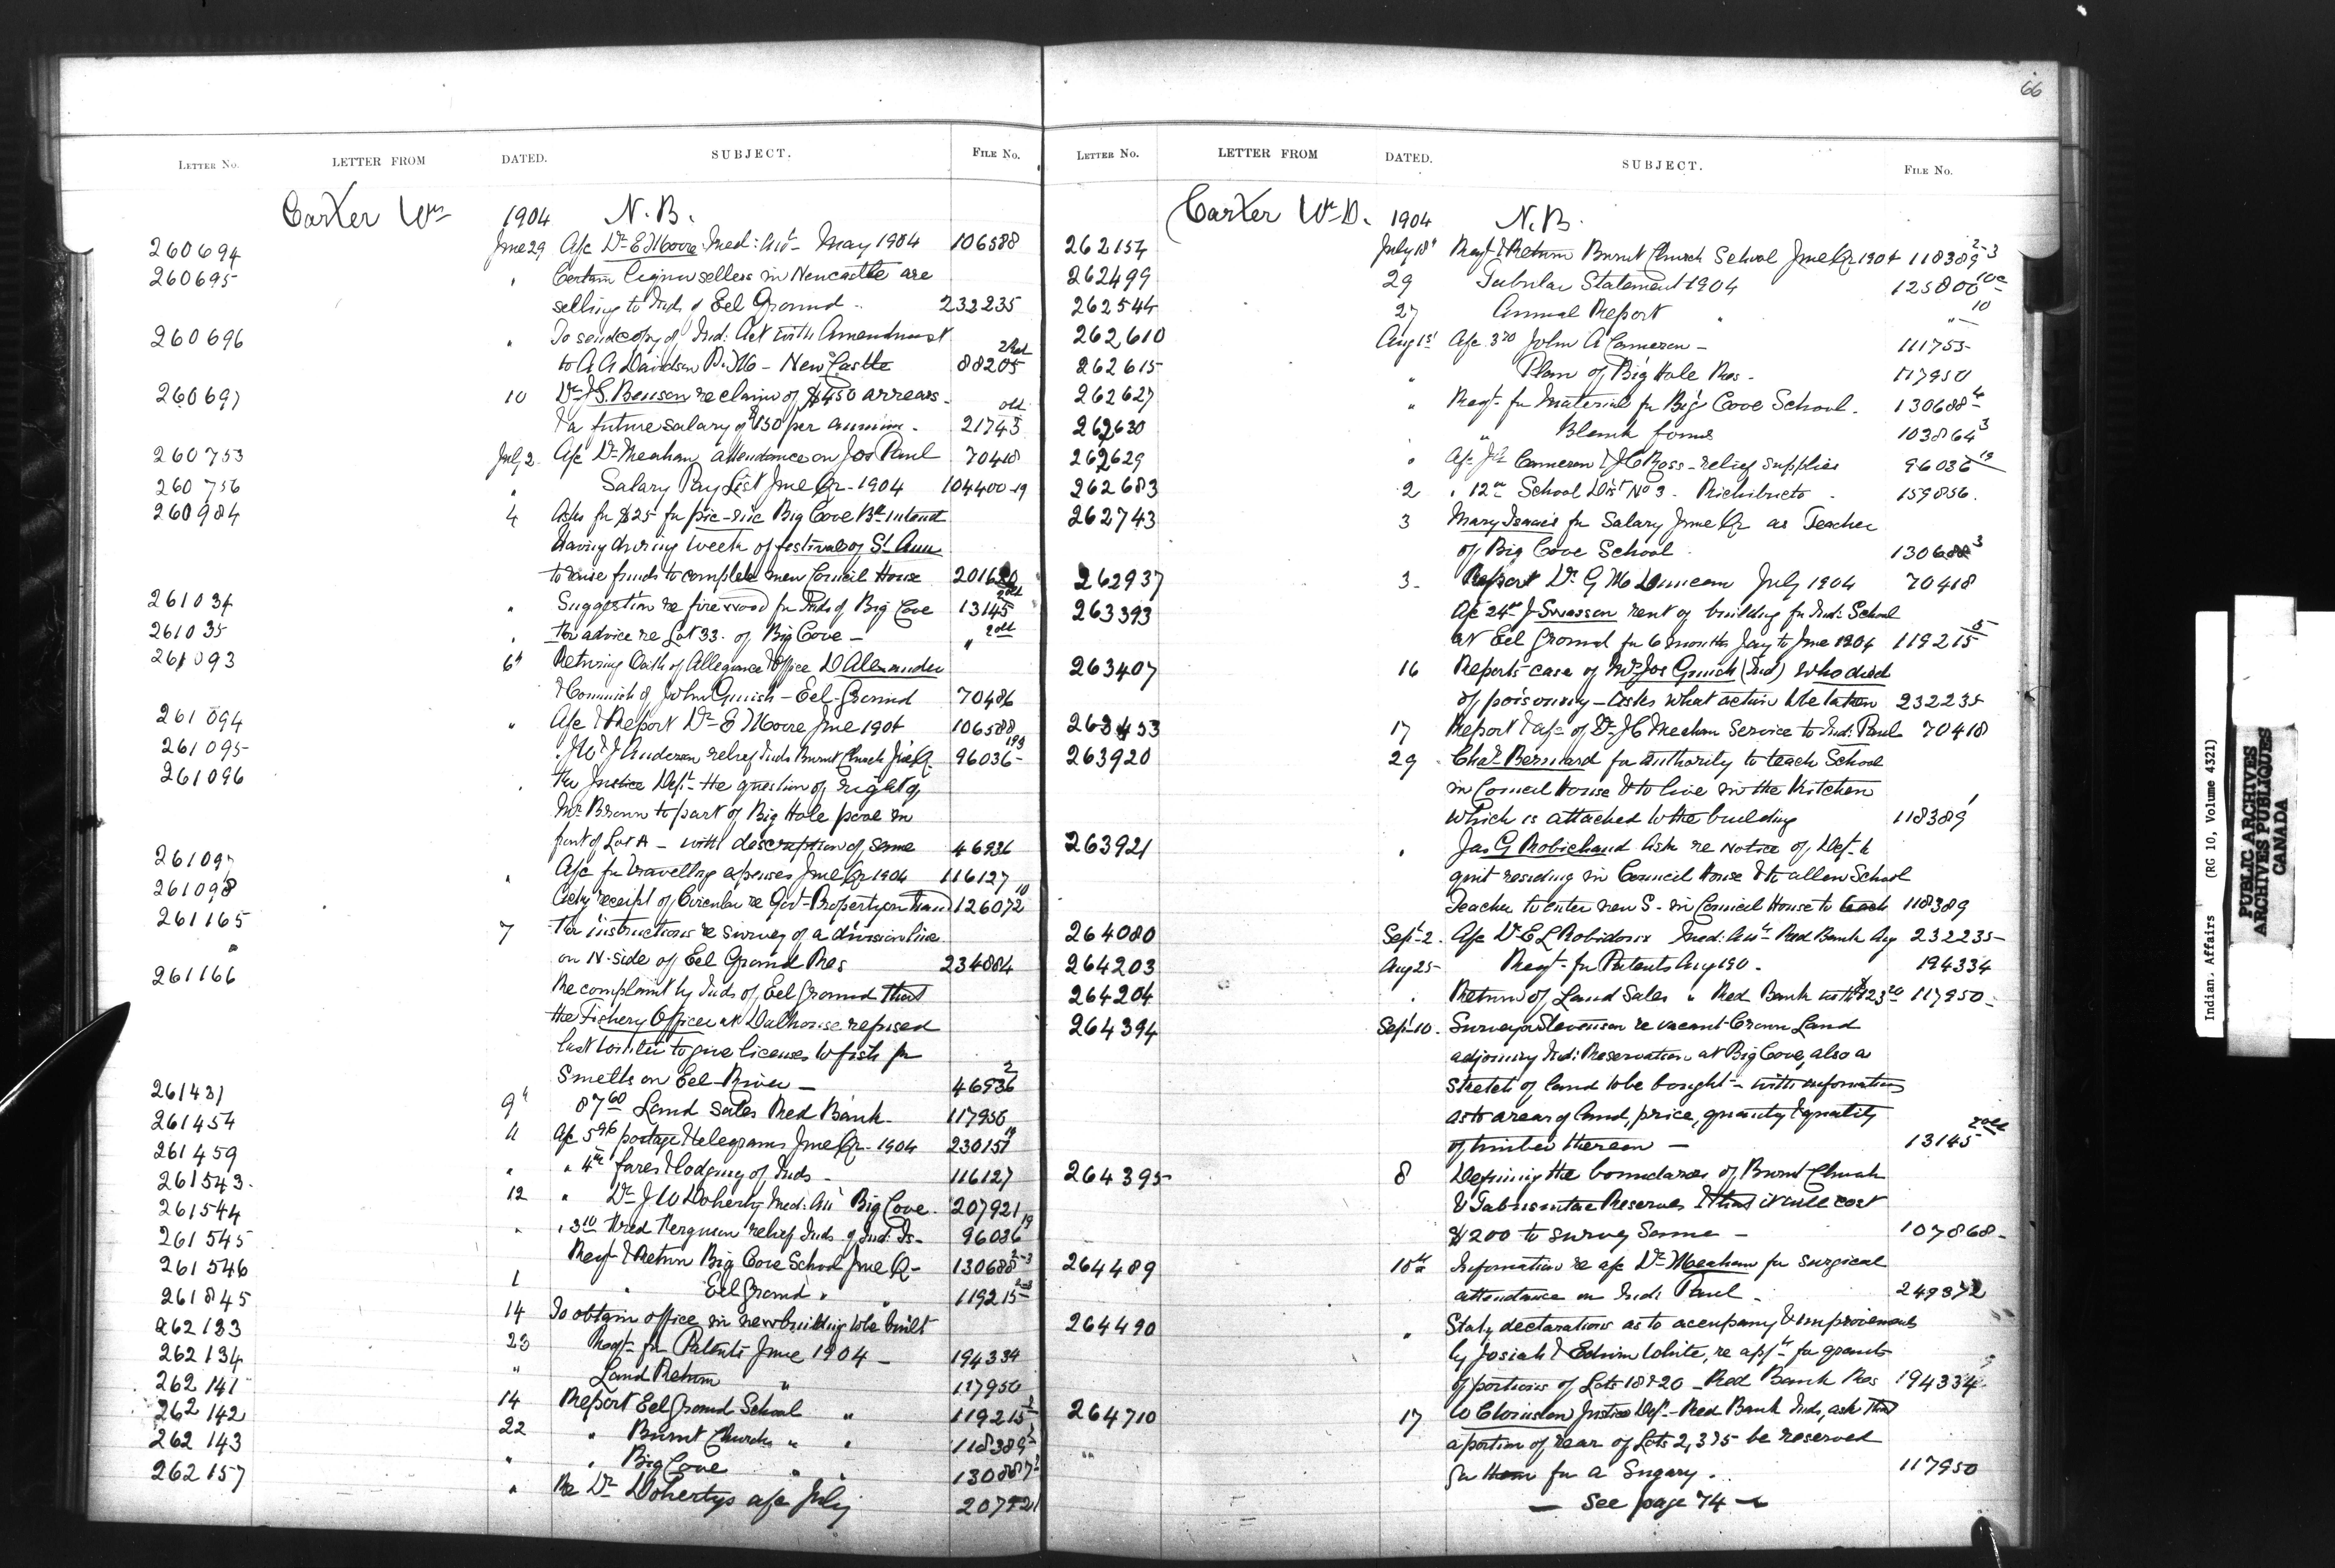 66
LETTER No. LETTER FROM DATED. SUBJECT. FILE No.
Carter Wm 1904 N.B.
260694 June 29 A/c Dr E Moore Med: Att. May 1904 106588
260695 " Certain liquor sellers in Newcastle are
selling to Inds of Eel Ground 232235
260696 " To send copy of Ind: Act with Amendment
to A A Davidson P. M - New Castle 88205
260697 10 Dr J S. Benson re claim of $450 arrears
& a future salary of $150 per annum. 21745 old
260753 July 2 A/c Dr Meahan attendance on Jos Paul 70418
260756 " Salary Pay List June Qr - 1904 104400-19
260984 4 Asks for $25 for pic-nic Big Cove Bd intend
having during week of festival of St Ann
to raise funds to complete new Council House 201620
261034 " Suggestion re fire wood for Inds of Big Cove 13145
261035 " For advice re Lot 33. of Big Cove - " 2 old
261093 6 Returning Oath of Allegiance & Office D Alexander
& Commish of John Ginish - Eel-Ground 70486
261094 " A/c & Report Dr E Moore June 1904 106588
261095 J W & J Anderson relief Inds Burnt Church June Q. 96036 193
261096 " For Justice Dept - the question of right of
Mr Brown to part of Big Hole pool in
front of Lot A - with description of same 46936
261097 " A/c for travelling expenses June Qr 1904 116127
261098 Ackg receipt of Circular re Govt- Property on hand 126072 10
261165 7 For instructions re survey of a division line
" on N-side of Eel Ground Res 234884
261166 Re complaint by Inds of Eel Ground that
the Fishery Officer at Dalhousie refused
last winter to give licenses to fish for
Smelts on Eel River - 46936 2
261431 9 87 60 Land Sales Red Bank. 117950
261454 11 A/c 5 96 postage & telegrams June Qr - 1904 230151
261459 " " fares & lodging of Inds - 116127
261543. 12 " Dr J W Doherty Med: Att Big Cove. 207921
261544 " " 3 10 Fred Ferguson relief Inds of Ind: Is- 96036 19
261545 Reqt & Return Big Cove School June Q- 130688 2-3
261546 1 " Eel Ground " " 119215
261845 14 To obtain office in new building to be built
262133 23 Reqt for Patents June 1904 - 194334
262134 " Land Return " 117950
262141 14 Report Eel Ground School " 119215
262142 22 " Burnt Church " " 118389
262143 " " Big Cove "
262157 " Re Dr Dohertys a/c July 207921
LETTER No. LETTER FROM DATED. SUBJECT. FILE No.
Carter Wm D. 1904 N.B.
262154 July 18 Reqt & Return Burnt Church School June Qr 1904 118389 2-3
262499 29 Tabular Statement 1904 125800
262544 27 Annual Report " " 10
262610 Aug 1st A/c 3 70 John A Cameron - 111755
262615 " Plan of Big Hole Res. 117950
262627 " Reqt for Material for Big Cove School. 130688 4
262630 " " Blank forms 103864 3
262629 " A/c J A Cameron & J C Ross - relief supplies 96036 19
262683 2 " 12 School Dist No 3. Richibucto . 159856.
262743 3 Mary Isaacs for Salary June Qr as Teacher
of Big Cove School 130688 3
262937 3- Report Dr G M Duncan July 1904 70418
263393 A/c 24 J Swasson rent of building for Ind: School
at Eel Ground for 6 months Jany to June 1904 119215 5
263407 16 Reports case of Mrs Jos Ginish (Ind) who died
of poisoning - asks what action to be taken 232235
263453 17 Report & a/c of Dr J C Meahan Service to Ind: Paul 70418
263920 29 Chas Bernard for authority to teach School
in Council House & to live in the Kitchen
which is attached to the building 118389 1
263921 " Jas G Robichaud Ask re Notice of Dept to
quit residing in Council House & to allow School
Teacher to enter new S- in Council House to teach 118389
264080 Sept-2. A/c Dr E L Robidoux Med: Att Red Bank Aug 232235-
264203 Aug 25- Reqt- for Patents Aug 190 - 194334
264204 " Return of Land Sales " Red Bank with $123 20 117950-
264394 Sept 10. Surveyor Stevenson re vacant Crown Land
adjoining Ind: Reservation at Big Cove, also a
stretch of land to be bought - with information
as to area of land, price, quantity & quality
of timber thereon - 13145 2 old
264395 8 Defining the boundaries of Burnt Church
& Tabusintac Reserves & that it will cost
$200 to survey same - 107868-
264489 10th Information re a/c Dr Meahan for surgical
attendance on Ind: Paul - 249372
264490 " Staty declarations as to occupancy & improvements
by Josiah & Edwin White, re appn for grants
of portions of Lots 18 & 20 - Red Bank Res 194334
264710 17 W Chrinston Justice Dept - Red Bank Inds, ask that
a portion of rear of Lots 2, 3 & 5 be reserved
for them for a Sugary. 117950
— See page 74 —
Indian Affairs (RG 10, Volume 4321)
PUBLIC ARCHIVES
ARCHIVES PUBLIQUES
CANADA